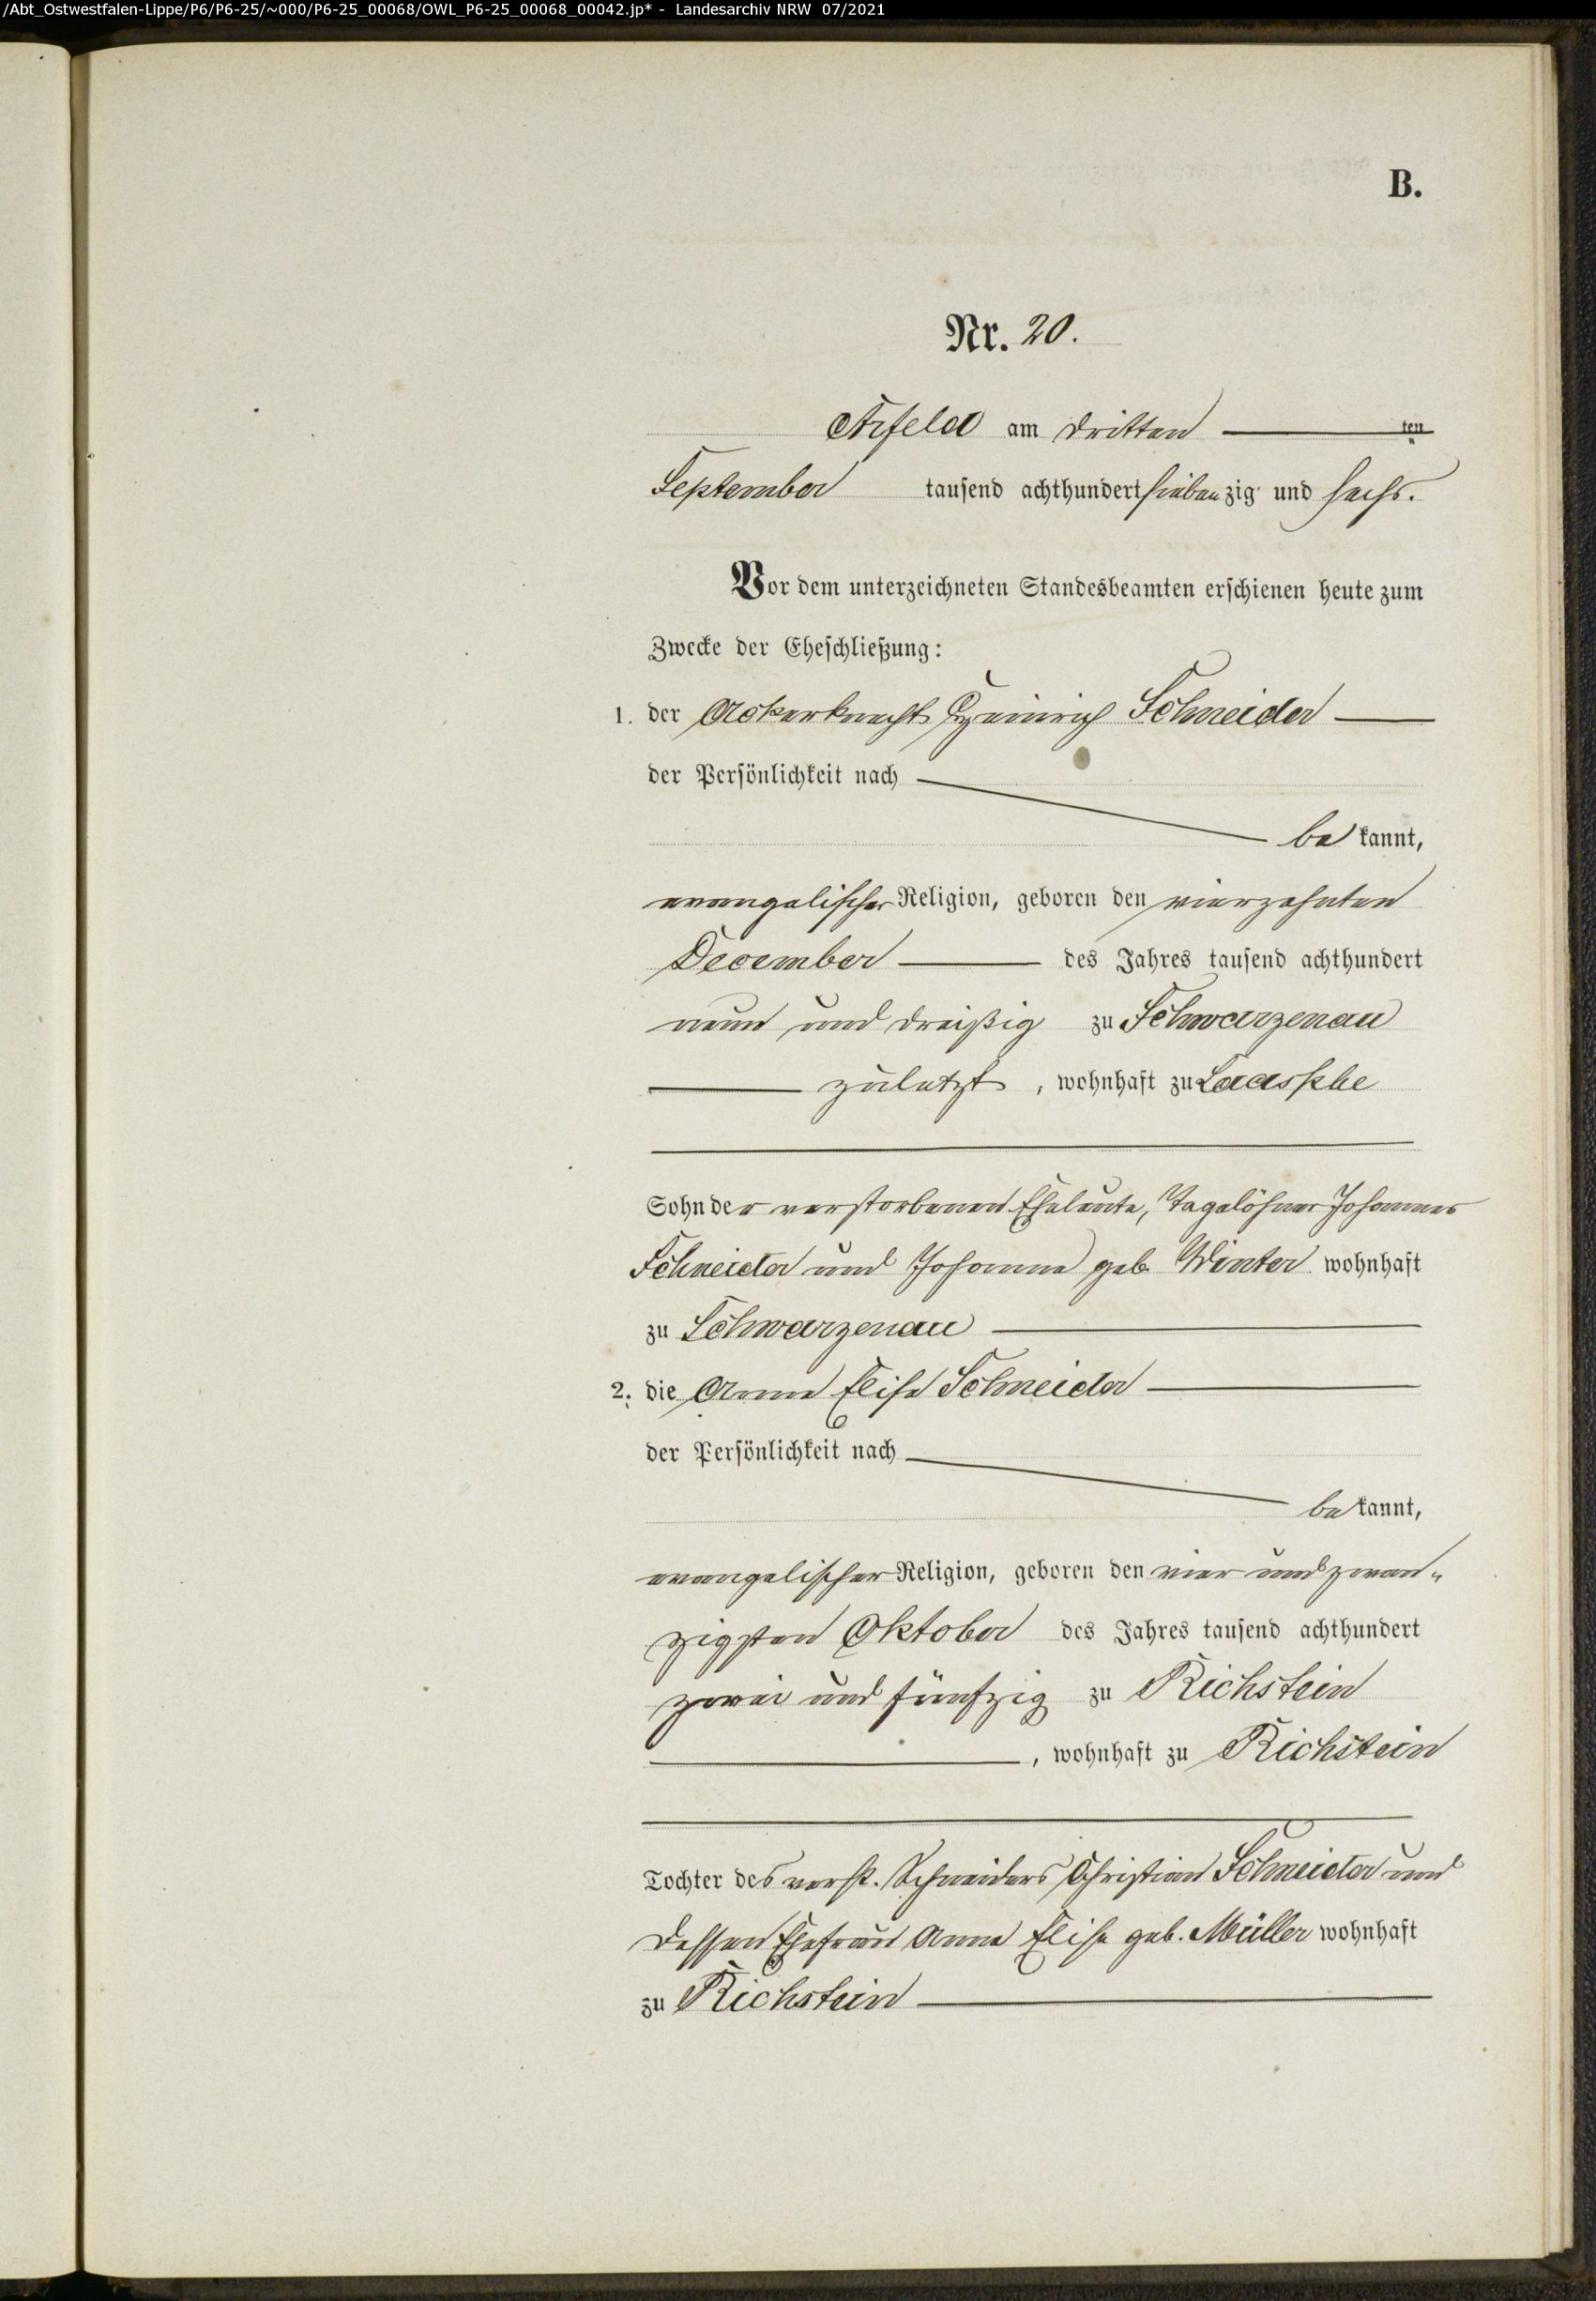 /Abt_Ostwestfalen-Lippe/P6/P6-25/~000/P6-25_00068/OWL_P6-25_00068_00042.jp* - Landesarchiv NRW 07/2021
B.
Nr. 20.
Arfeld am dritten ten
September tausend achthundert sieben zig und sechs.
Vor dem unterzeichneten Standesbeamten erschienen heute zum
Zwecke der Eheschließung:
1. der Ackerknecht Heinrich Schneider
der Persönlichkeit nach
be kannt,
evangelischer Religion, geboren den vierzehnten
December des Jahres tausend achthundert
neun und dreißig zu Schwarzenau
zuletzt, wohnhaft zu Laasphe
Sohn der verstorbenen Eheleute, Tagelöhner Johannes
Schneider und Johanne geb. Winter wohnhaft
zu Schwarzenau
2. die Anna Elise Schneider
der Persönlichkeit nach
be kannt,
evangelischer Religion, geboren den vier und zwan-
zigsten Oktober des Jahres tausend achthundert
zwei und fünfzig zu Richstein
, wohnhaft zu Richstein
Tochter des verst. Schneiders Christian Schneider und
dessen Ehefrau Anna Elise geb. Müller wohnhaft
zu Richstein